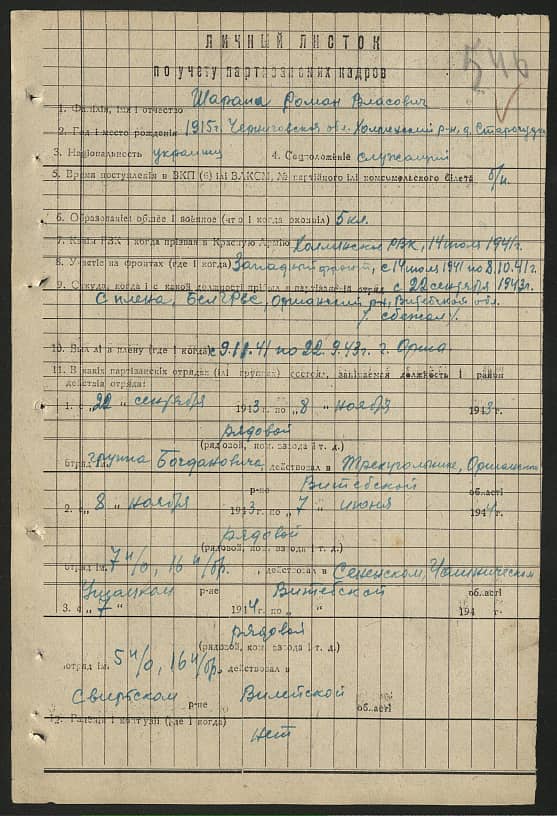 546
ЛИЧНЫЙ ЛИСТОК
по учету партизанских кадров
1. Фамілія, імя і отчество Шарапа Роман Власович
2. Год і место рождения 1915г. Черниговская обл. Холменский р-н, д.
3. Національность украинец 4. Соцположение служащий
5. Время поступления в ВКП (б) ілі ВЛКСМ, № партійного ілі комсомольского білета б/п.
6. Образованіе общее і военное (что і когда окончіл) 5 кл.
7. Какім РВК і когда прізван в Красную Армію Холминским РВК, 14 июля 1941г.
8. Участіе на фронтах (где і когда) Западный фронт, с 14 июля 1941 по 8.10.41г.
9. Откуда, когда і с какой должності прібыл в партізанскій отряд с 22 сентября 1943г.
с плена, Оршанский рн, Витебская обл.
/, сбежал/.
10. Был лі в плену (где і когда) по 22.9.43г. г. Орша
11. В какіх партізанскіх отрядах (ілі группах) состоял, занімаемая должность і район
действія отряда:
1. с „22 “ сентября 1943г. по „8 “ ноября 1943г.
рядовой
(рядовой, ком. взвода і т. д.)
отряд ім. группа Богдановича, действовал в Оршанском
р-не Витебской області
2. с „ 8 “ ноября 1943г. по „ 7 “ июня 1944г.
рядовой
(рядовой, ком. взвода і т. д.)
отряд ім. 7 п/о, 16 п/бр. , действовал в Сененском, Чашникском
Ушацком р-не Витебской області
3. с „ 7 “ 1944г. по „ “ 194 г.
рядовой
(рядовой, ком. взвода і т. д.)
отряд ім. 5 п/о, 16 п/бр., действовал в
Свирьском р-не Вилейской області
12. Раненія і контузіі (где і когда)
нет